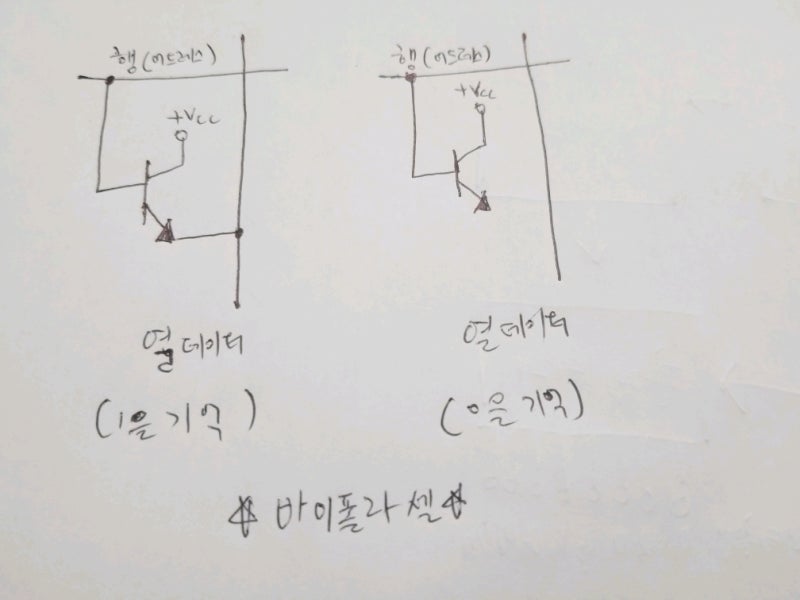 행(어드레스)
행(어드레스)
+Vcc
+Vcc
열 데이터
열 데이터
(1을 기억)
(0을 기억)
☆ 바이폴라 셀 ☆